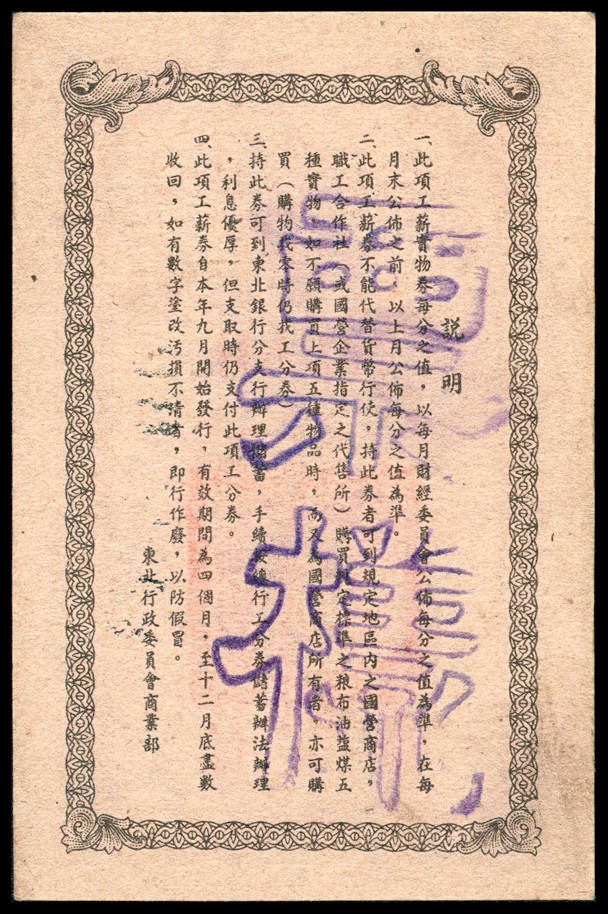 說明
一、此項工薪實物券每分之值，以每月財經委員會公佈每分之值為準，在每
月末公佈之前，以上月公佈每分之值為準。
二、此項工薪券不能代替貨幣行使，持此券者可到規定地區內之國營商店，
職工合作社（或國營企業指定之代售所）購買規定標準之粮布油盐煤五
種實物，如不願購買上項五種物品時，而又為國營商店所有者，亦可購
買（購物找零時仍找工分券）
三、持此券可到東北銀行分支行辦理儲蓄，手續按該行工分券儲蓄辦法辦理
，利息優厚，但支取時仍支付此項工分券。
四、此項工薪券自本年九月開始發行，有效期間為四個月，至十二月底盡數
收回，如有數字塗改汚損不清者，即行作廢，以防假冒。
東北行政委員會商業部
票樣